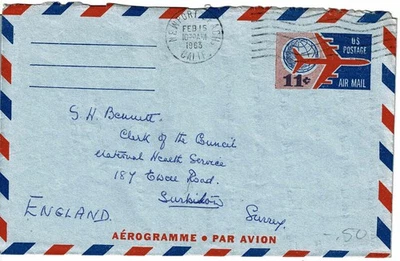 NEWPORT BEACH
CALIF.
FEB 15
1965
US
POSTAGE
AIR MAIL
11¢
G. H. Bennett.
Clerk of the Council
National Health Service
187 Ewell Road.
Surbiton
Surrey.
ENGLAND.
AÉROGRAMME • PAR AVION
-.50